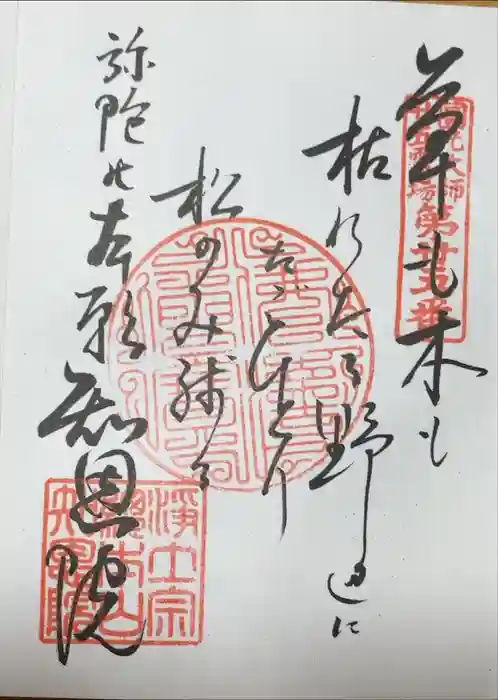 圓光大師
霊場
第廿五番
草も木も
枯れたる野辺に
たゞひとり
松のみ残る
弥陀の本願 知恩院
淨土宗
總本山